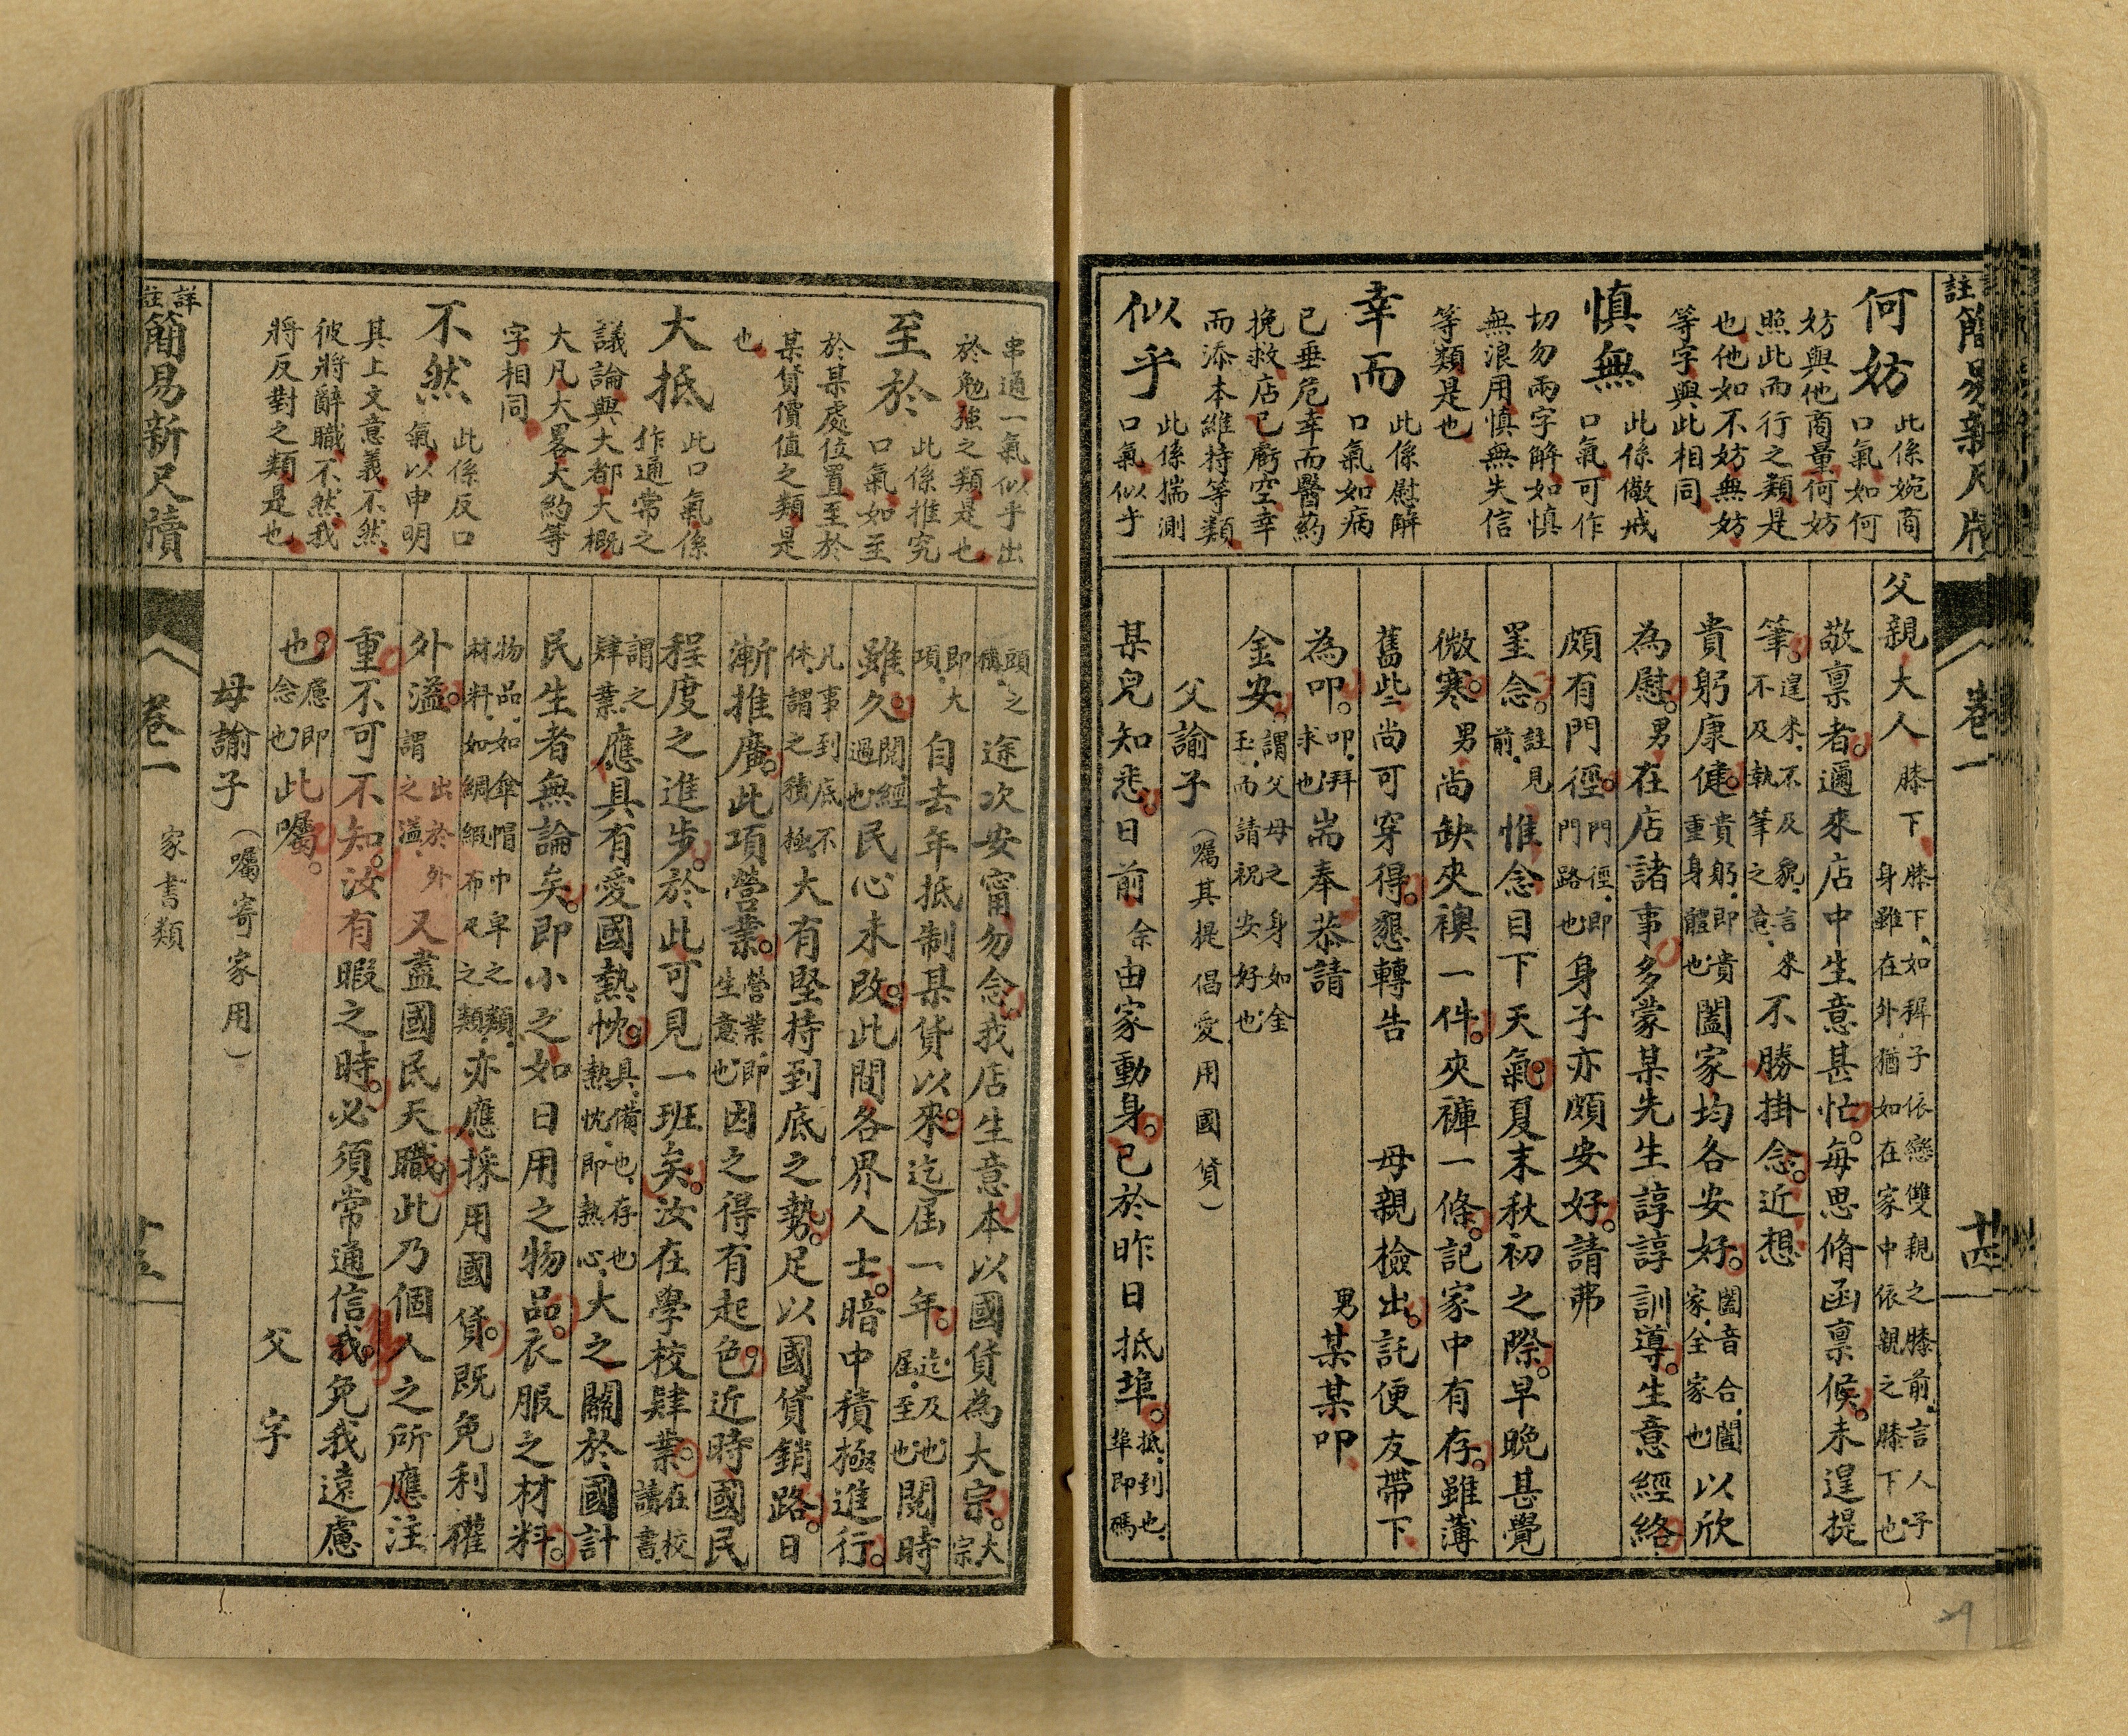 註簡易新尺牘
卷一
十四
何妨
此係婉商
口氣如何
妨與他商量何妨
照此而行之類是
也他如不妨無妨
等字與此相同
慎無
此係儆戒
口氣可作
切勿兩字解如慎
無浪用慎無失信
等類是也
幸而
此係慰解
口氣如病
已垂危幸而醫藥
挽救店已虧空幸
而添本維持等類
似乎
此係揣測
口氣似乎
父親大人膝下膝下、如稱子依戀雙親之膝前、言人子身雖在外猶如在家中依親之膝下也
敬稟者。邇來店中生意甚忙。每思脩函稟候。未遑提
筆。遑來、不及貌、言來不及執筆之意、不勝掛念。近想
貴躬康健。貴躬、即貴重身體也闔家均各安好。闔音合、闔家、全家也以欣
為慰。男在店諸事多蒙某先生諄諄訓導。生意經絡
頗有門徑。門徑、即門路也身子亦頗安好。請弗
罣念。註見前、惟念目下天氣。夏末秋初之際。早晚甚覺
微寒。男尚缺夾襖一件。夾褲一條。記家中有存。雖薄
舊些尚可穿得。懇轉告　母親檢出。託便友帶下
為叩。叩、拜求也耑奉恭請
金安。謂父母之身如金玉、而請祝安好也
男某某叩
父諭子（囑其提倡愛用國貨）
某兒知悉。日前余由家動身。已於昨日抵埠。抵、到也、埠即碼
頭之稱、途次安甯勿念。我店生意本以國貨為大宗。大宗
即大項、自去年抵制某貨以來。迄屆一年。迄、及也、屆、至也閱時
雖久。閱、經過也民心未改。此間各界人士。暗中積極進行。
凡事到底不休、謂之積極、大有堅持到底之勢。足以國貨銷路。日
漸推廣。此項營業。營業、即生意也因之得有起色。近時國民
程度之進步。於此可見一班矣。汝在學校肄業。在校讀書
謂之肄業、應具有愛國熱忱。具、備也、存也熱忱、即熱心、大之關於國計
民生者無論矣。即小之如日用之物品。衣服之材料。
物品、如傘帽巾皁之類、材料、如綢緞布疋之類、亦應採用國貨。既免利權
外溢。出於外謂之溢、又盡國民天職。此乃個人之所應注
重。不可不知。汝有暇之時。必須常通信我。免我遠慮
也。慮即念也此囑。
父字
母諭子（囑寄家用）
串通一氣似乎出
於勉強之類是也
至於
此係推究
口氣如至
於某處位置至於
某貨價值之類是
也
大抵
此口氣係
作通常之
議論與大都大概
大凡大畧大約等
字相同
不然
此係反口
氣以申明
其上文意義不然
彼將辭職不然我
將反對之類是也
詳註簡易新尺牘
卷一
家書類
十五